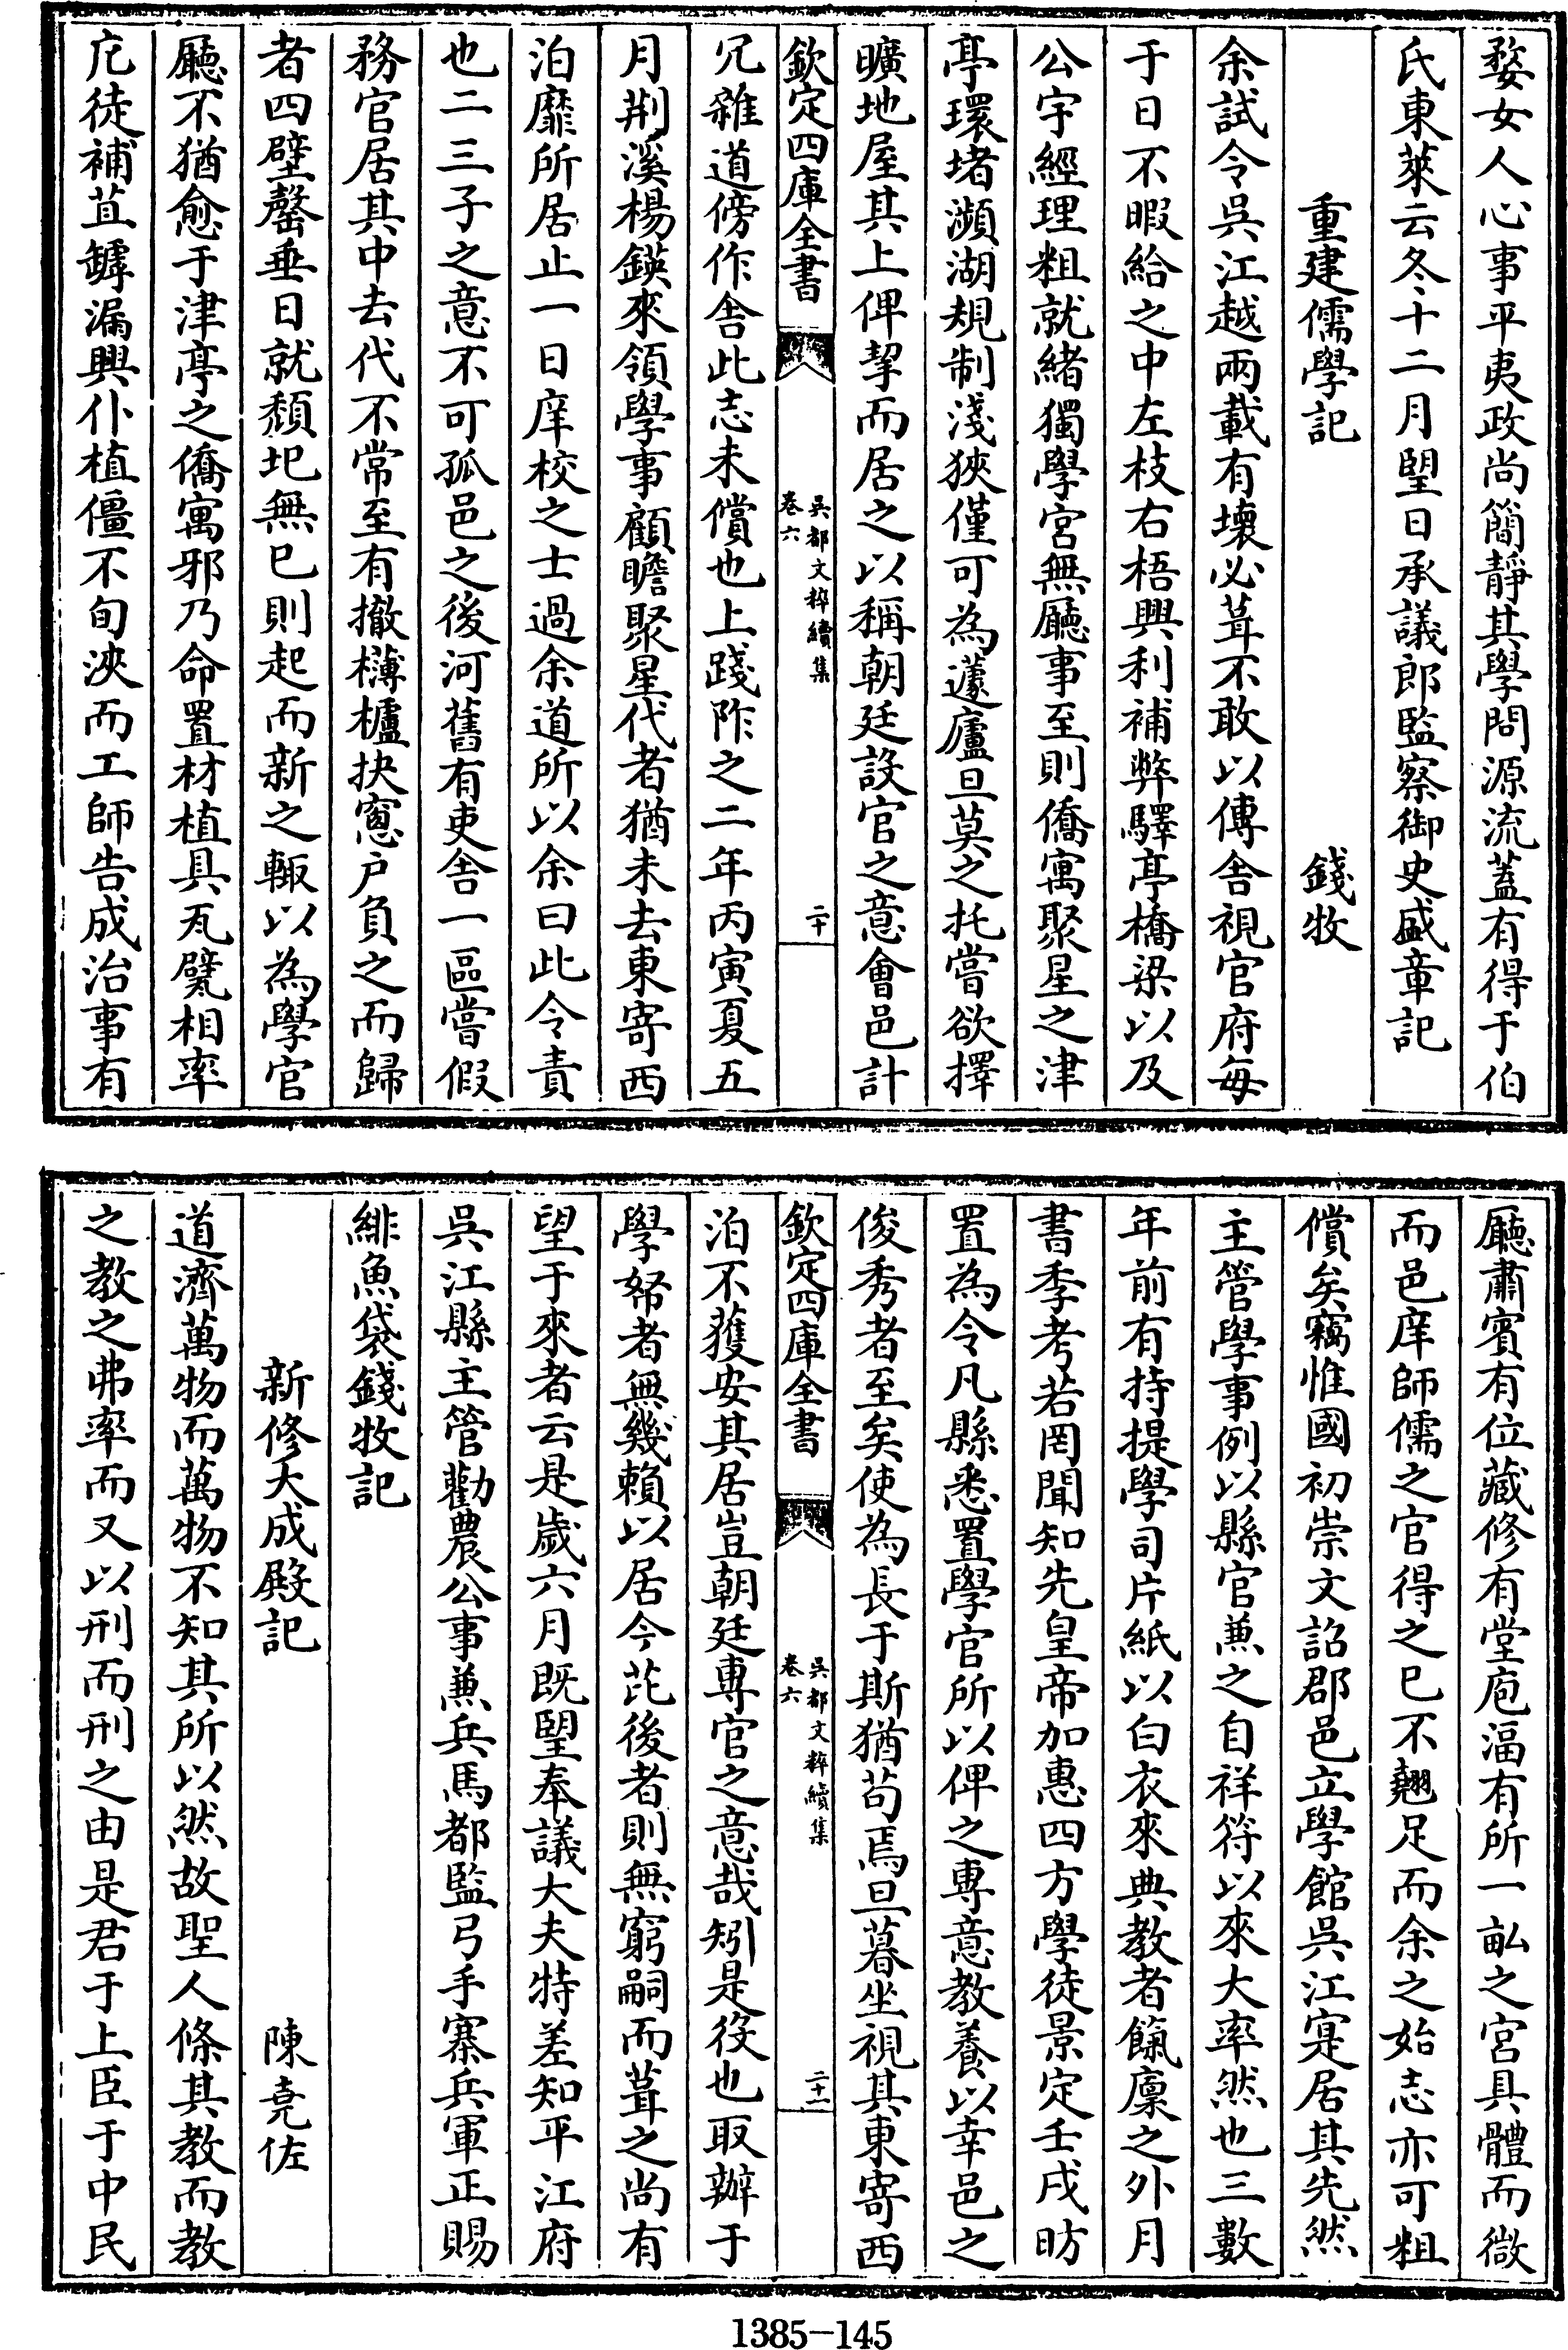 婺女人心事平夷政尚簡靜其學問源流蓋有得于伯
氏東萊云冬十二月朢日承議郎監察御史盛章記
重建儒學記　錢牧
余試令吳江越兩載有壊必葺不敢以傳舎視官府每
于日不暇給之中左枝右梧興利補弊驛亭橋梁以及
公宇經理粗就緒獨學宮無廳事至則僑寓聚星之津
亭環堵瀕湖規制淺狹僅可為蘧廬旦莫之托嘗欲擇
曠地屋其上俾挈而居之以稱朝廷設官之意會邑計
欽定四庫全書
吳都文粹續集
卷六
二十
冗雜道傍作舎此志未償也上踐阼之二年丙寅夏五
月荆溪楊鍈來領學事顧瞻聚星代者猶未去東寄西
泊靡所居止一日庠校之士過余道所以余曰此令責
也二三子之意不可孤邑之後河舊有吏舎一區嘗假
務官居其中去代不常至有撤欂櫨抉窻戶負之而歸
者四壁罄垂日就頽圯無已則起而新之輙以為學官
廳不猶愈于津亭之僑寓邪乃命置材植具瓦甓相率
庀徒補苴罅漏興仆植僵不旬浹而工師告成治事有
廳肅賓有位藏修有堂庖湢有所一畝之宮具體而微
而邑庠師儒之官得之已不翹足而余之始志亦可粗
償矣竊惟國初崇文詔郡邑立學館吳江寔居其先然
主管學事例以縣官兼之自祥符以來大率然也三數
年前有持提學司片紙以白衣來典教者餼廩之外月
書季考若罔聞知先皇帝加惠四方學徒景定壬戌昉
置為令凡縣悉置學官所以俾之專意教養以幸邑之
俊秀者至矣使為長于斯猶苟焉旦暮坐視其東寄西
欽定四庫全書
吳都文粹續集
卷六
二十一
泊不獲安其居豈朝廷專官之意哉矧是役也取辦于
學帑者無幾賴以居今茈後者則無窮嗣而葺之尚有
望于來者云是歲六月既朢奉議大夫特差知平江府
吳江縣主管勸農公事兼兵馬都監弓手寨兵軍正賜
緋魚袋錢牧記
新修大成殿記　陳堯佐
道濟萬物而萬物不知其所以然故聖人條其教而教
之教之弗率而又以刑而刑之由是君于上臣于中民
1385-145